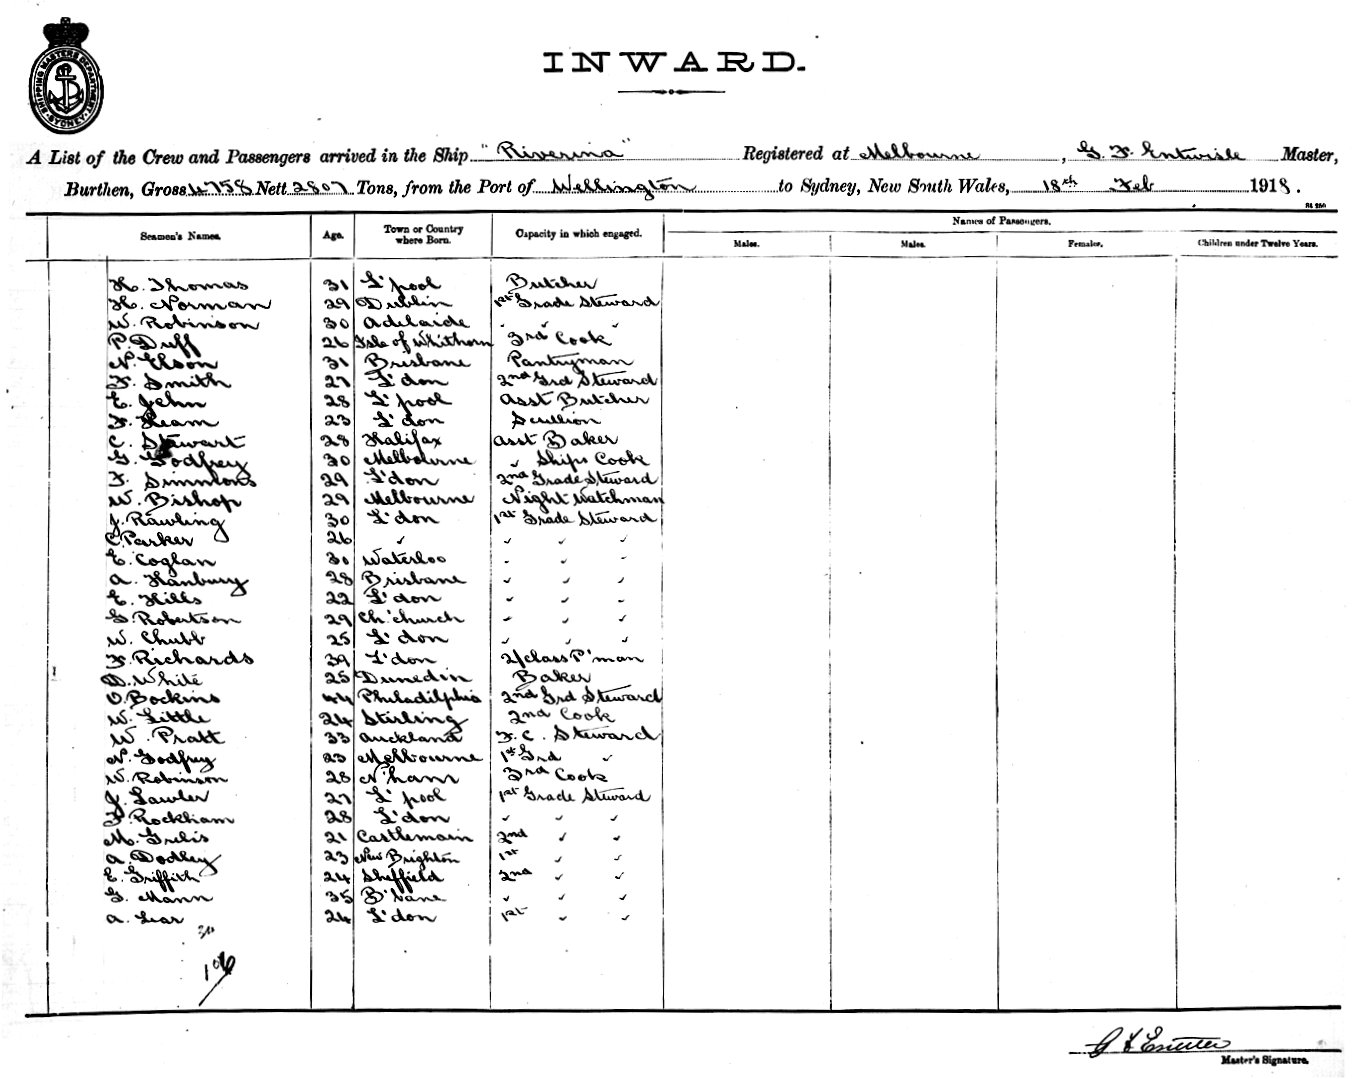 SHIPPING MASTERS DEPARTMENT SYDNEY
INWARD.
A List of the Crew and Passengers arrived in the Ship "Riverina" Registered at Melbourne, G. F. Entwisle Master,
Burthen, Gross 4758 Nett 2807 Tons, from the Port of Wellington to Sydney, New South Wales, 18th Feb 1918.
Seamen's Names. Age. Town or Country where Born. Capacity in which engaged. Names of Passengers.
Males. Males. Females. Children under Twelve Years.
H. Thomas 31 L'pool Butcher
H. Norman 29 Dublin 1st Grade Steward
W. Robinson 30 Adelaide " " "
P. Duff 26 Isle of Whithorn 3rd Cook
N. Elson 31 Brisbane Pantryman
F. Smith 27 L'don 2nd Grd Steward
E. John 28 L'pool Asst Butcher
F. Heam 23 L'don Scullion
C. Stewart 28 Halifax Asst Baker
G. Godfrey 30 Melbourne " Ships Cook
F. Simmons 29 L'don 2nd Grade Steward
W. Bishop 29 Melbourne Night Watchman
J. Rawling 30 L'don 1st Grade Steward
C. Parker 26 " " " "
E. Coglan 30 Waterloo " " "
A. Hanbury 28 Brisbane " " "
E. Hills 22 L'don " " "
G. Robertson 29 Ch'church " " "
W. Chubb 25 L'don " " "
F. Richards 39 L'don 2/class P'man
D. White 25 Dunedin Baker
O. Bockins 44 Philadilphia 2nd Grd Steward
W. Little 24 Stirling 2nd Cook
W. Pratt 33 Auckland F. C. Steward
N. Godfrey 23 Melbourne 1st Grd "
W. Robinson 28 N'ham 3rd Cook
J. Lawler 27 L'pool 1st Grade Steward
F. Rockham 28 L'don " " "
M. 21 Castlemain 2nd " "
A. Dodley 23 New Brighton 1st " "
E. Griffith 24 Sheffield 2nd " "
G. Mann 35 B'vane " " "
A. Lear 24 L'don 1st " "
106
Master's Signature.